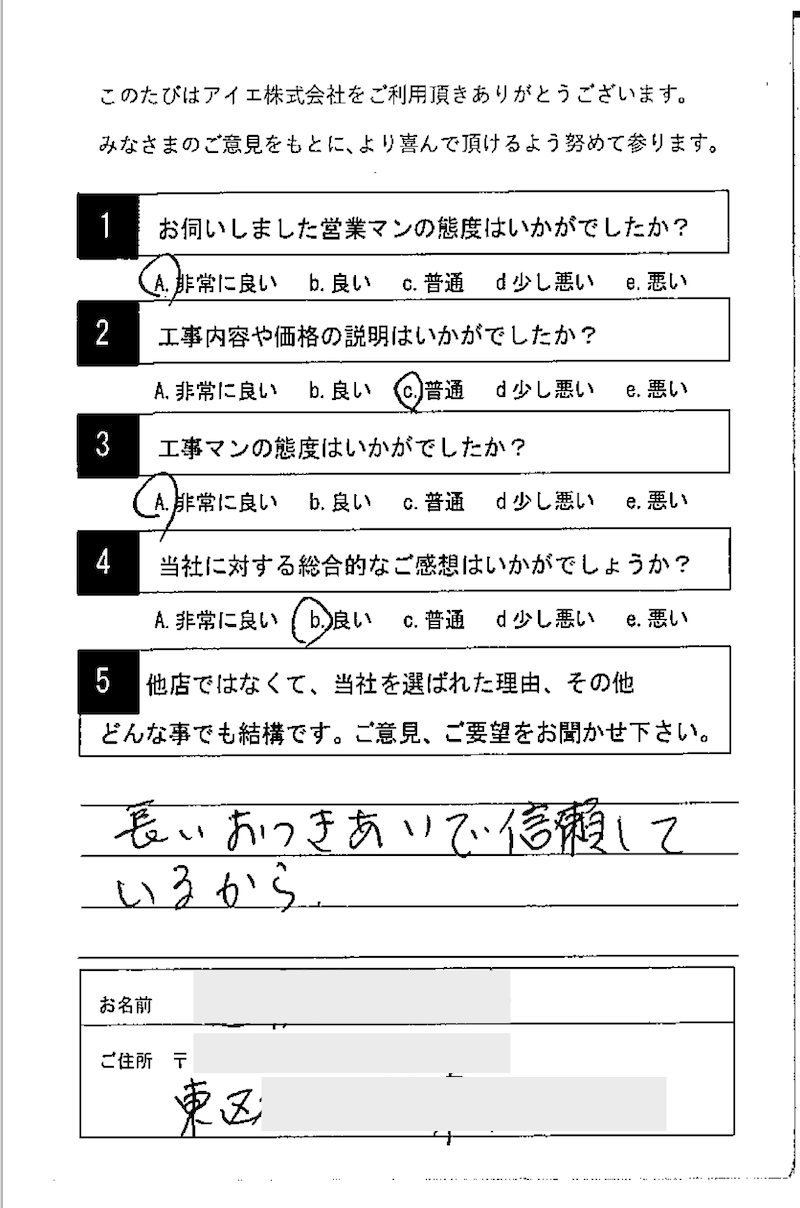 このたびはアイエ株式会社をご利用頂きありがとうございます。
みなさまのご意見をもとに、より喜んで頂けるよう努めて参ります。
1 お伺いしました営業マンの態度はいかがでしたか？
A. 非常に良い b. 良い c. 普通 d 少し悪い e. 悪い
2 工事内容や価格の説明はいかがでしたか？
A. 非常に良い b. 良い c. 普通 d 少し悪い e. 悪い
3 工事マンの態度はいかがでしたか？
A. 非常に良い b. 良い c. 普通 d 少し悪い e. 悪い
4 当社に対する総合的なご感想はいかがでしょうか？
A. 非常に良い b. 良い c. 普通 d 少し悪い e. 悪い
5 他店ではなくて、当社を選ばれた理由、その他
どんな事でも結構です。ご意見、ご要望をお聞かせ下さい。
長いおつきあいで信頼して
いるから.
お名前
ご住所 〒
東区